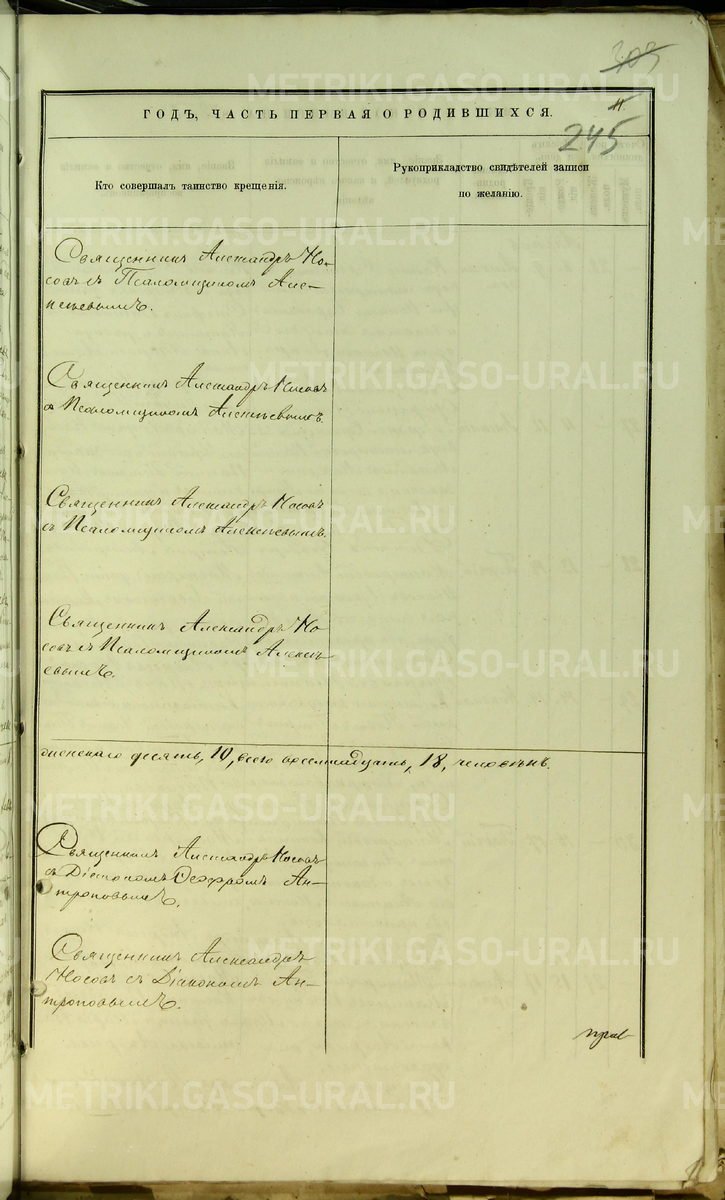 303
ГОДЪ, ЧАСТЬ ПЕРВАЯ О РОДИВШИХСЯ.
245
Кто совершалъ таинство крещенія.
Рукоприкладство свидѣтелей записи
по желанію.
Священникъ Александръ Но-
совъ съ Псаломщикомъ Алек-
сѣевымъ.
Священникъ Александръ Носовъ
съ Псаломщикомъ Алексѣевымъ.
Священникъ Александръ Носовъ
съ Псаломщикомъ Алексѣевымъ.
Священникъ Александръ Но-
совъ съ Псаломщикомъ Алексѣ-
евымъ.
десять, 10, всего восемнадцать, 18, человѣкъ.
Священникъ Александръ Носовъ
съ Діакономъ Ан-
троповымъ.
Священникъ Александръ
Носовъ съ Діакономъ Ан-
троповымъ.
METRIKI.GASO-URAL.RU